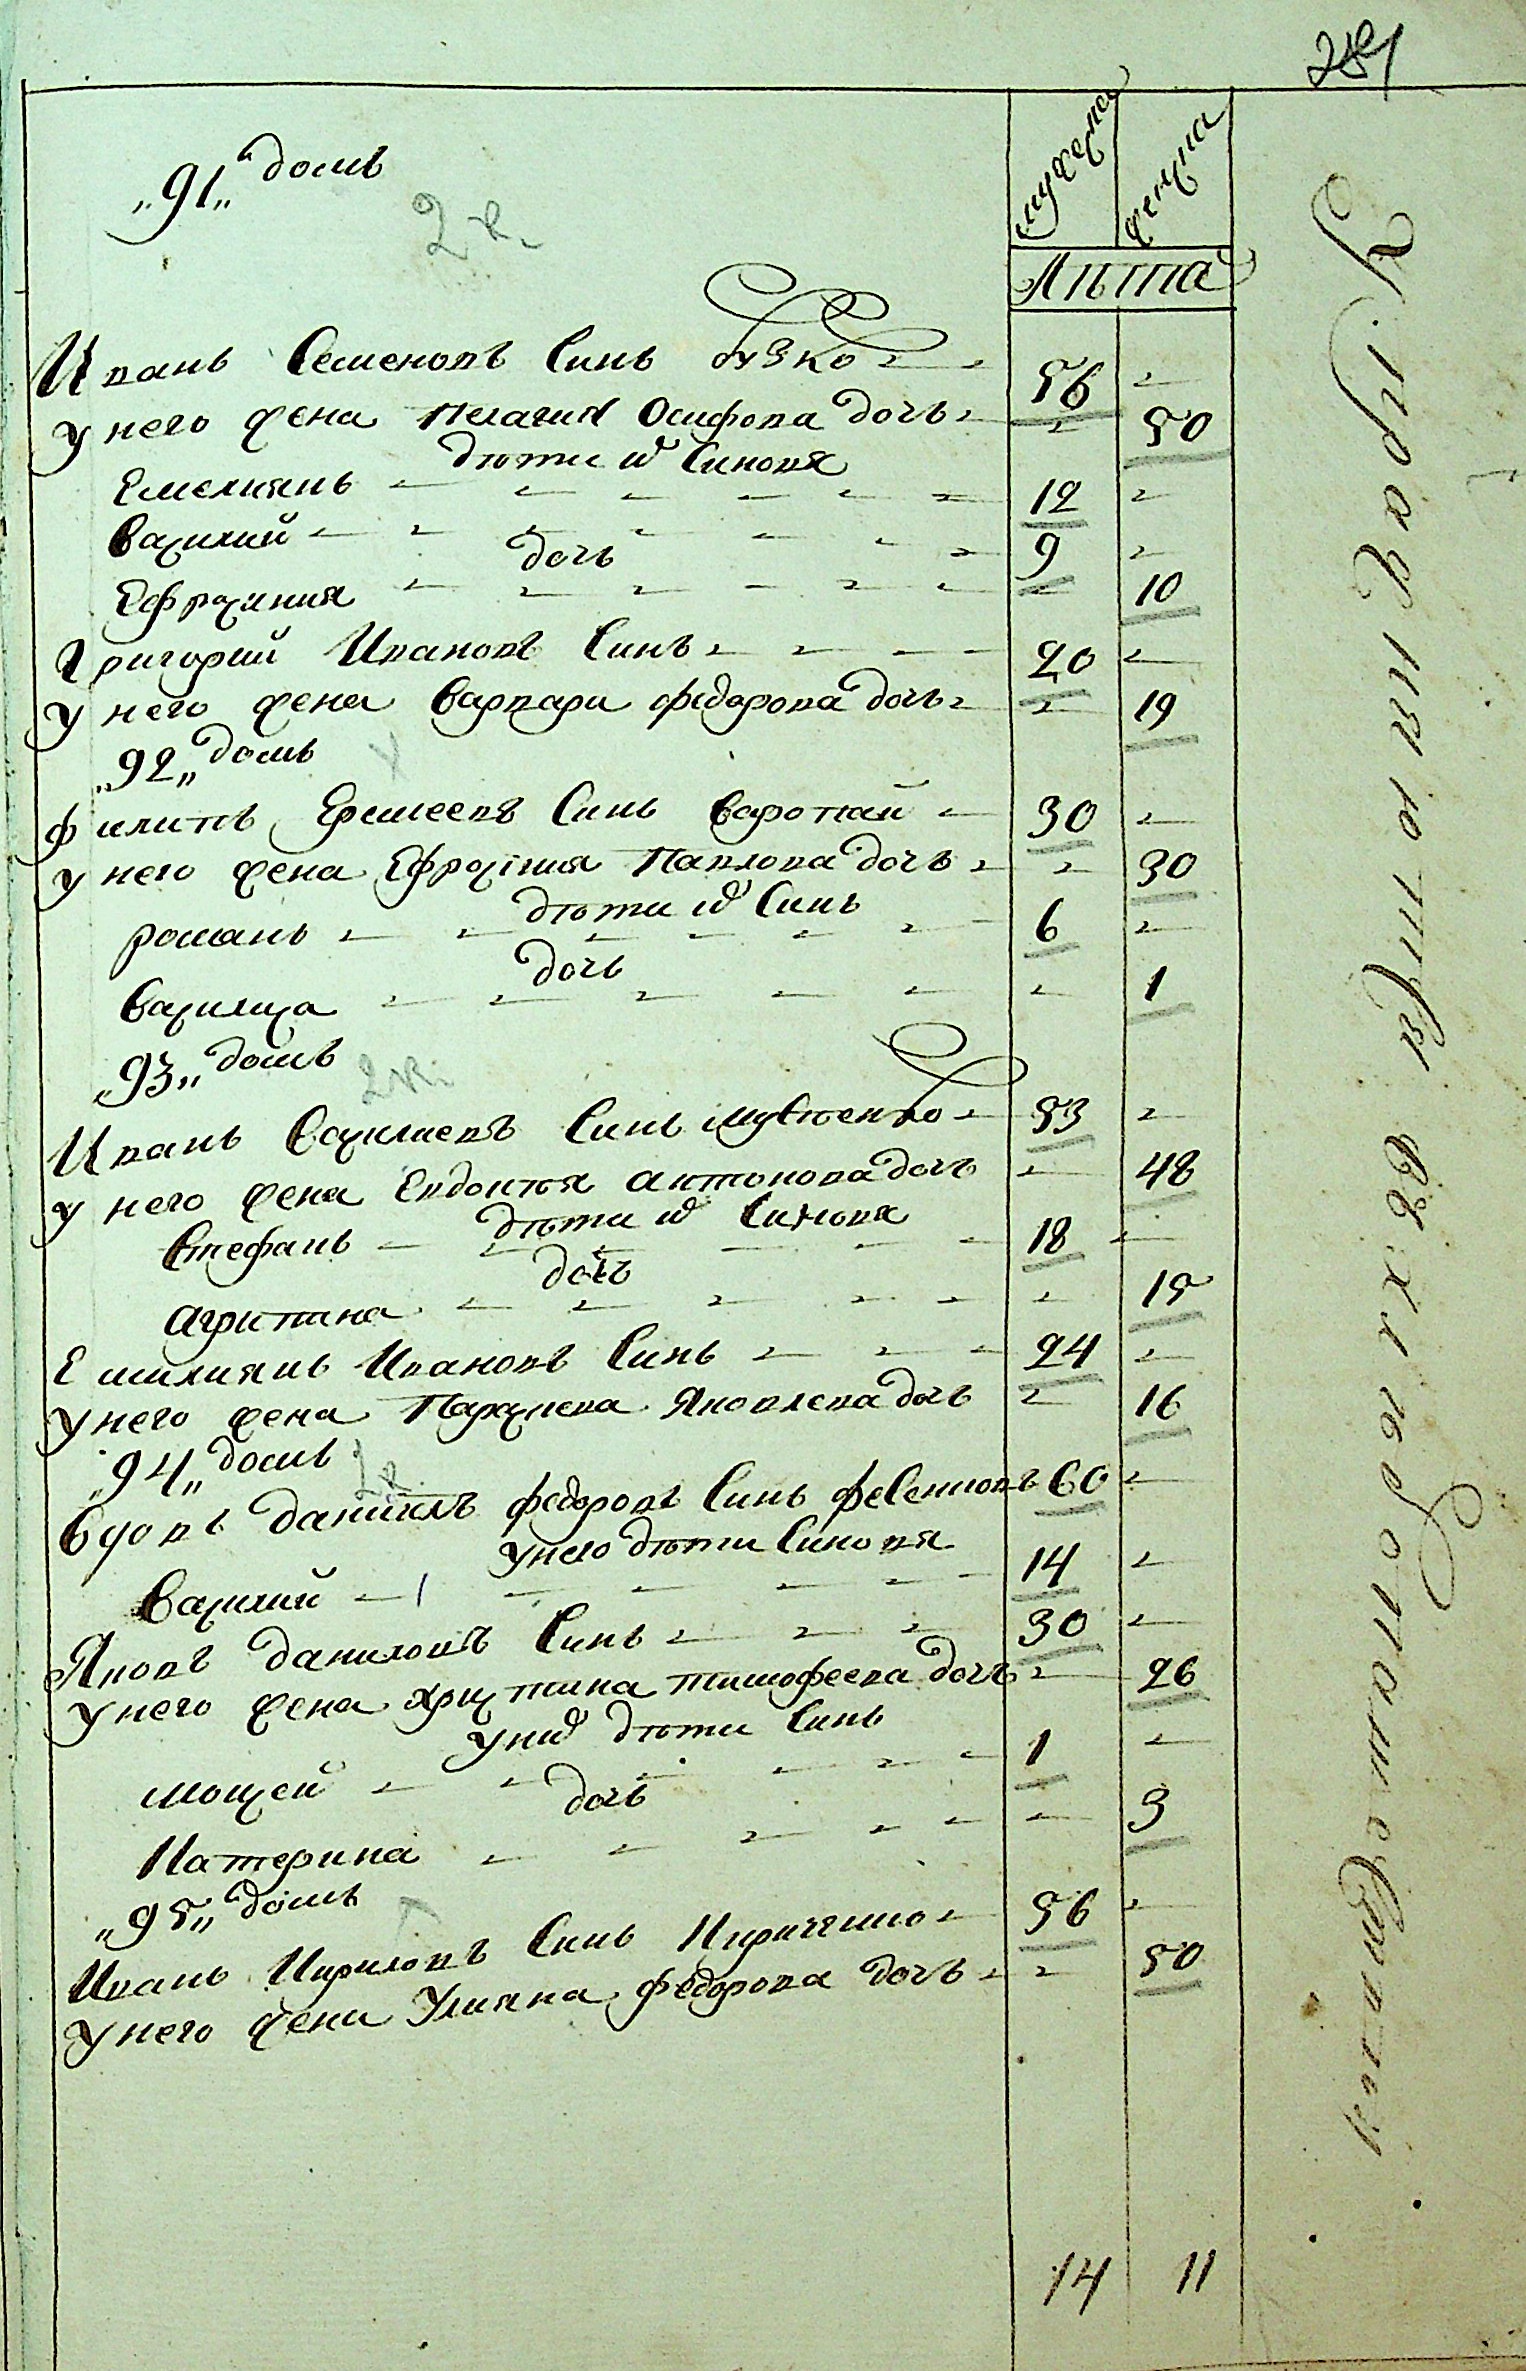 „91„ домъ
2 к.
мужеска
женска
Лѣта
Иванъ Семеновъ Синъ Бузко 56
У него жена Пелагия Осифова дочь 50
дѣти ихъ Синовя
Емелиянъ 12
Василий 9
дочь
Ефросиния 10
Григорий Ивановъ Синъ 20
У него жена Варвара федорова дочь 19
„92„ домъ
филипъ Еремеевъ Синъ 30
У него жена Ефросиния Павлова дочь 30
дѣти ихъ Синъ
романъ 6
дочь
Василиса 1
„93„ домъ
2 к.
Иванъ Василиевъ Синъ 53
У него жена Евдокия антонова дочь 48
дѣти ихъ Синовя
Стефанъ 18
дочь
агрипина 15
Емилиянъ Ивановъ Синъ 24
У него жена Параскева Яковлева дочь 16
„94„ домъ
2 к.
Вдовъ даниилъ федоровъ Синъ 60
У него дѣти Синовя
Василий 14
Яковъ даниловъ Синъ 30
У него жена христина тимофеева дочь 26
У них дѣти Синъ
мосей 1
дочь
Катерина 3
„95„ домъ
Иванъ Кириловъ Синъ 56
У него жена Улияна федорова дочь 50
14 11